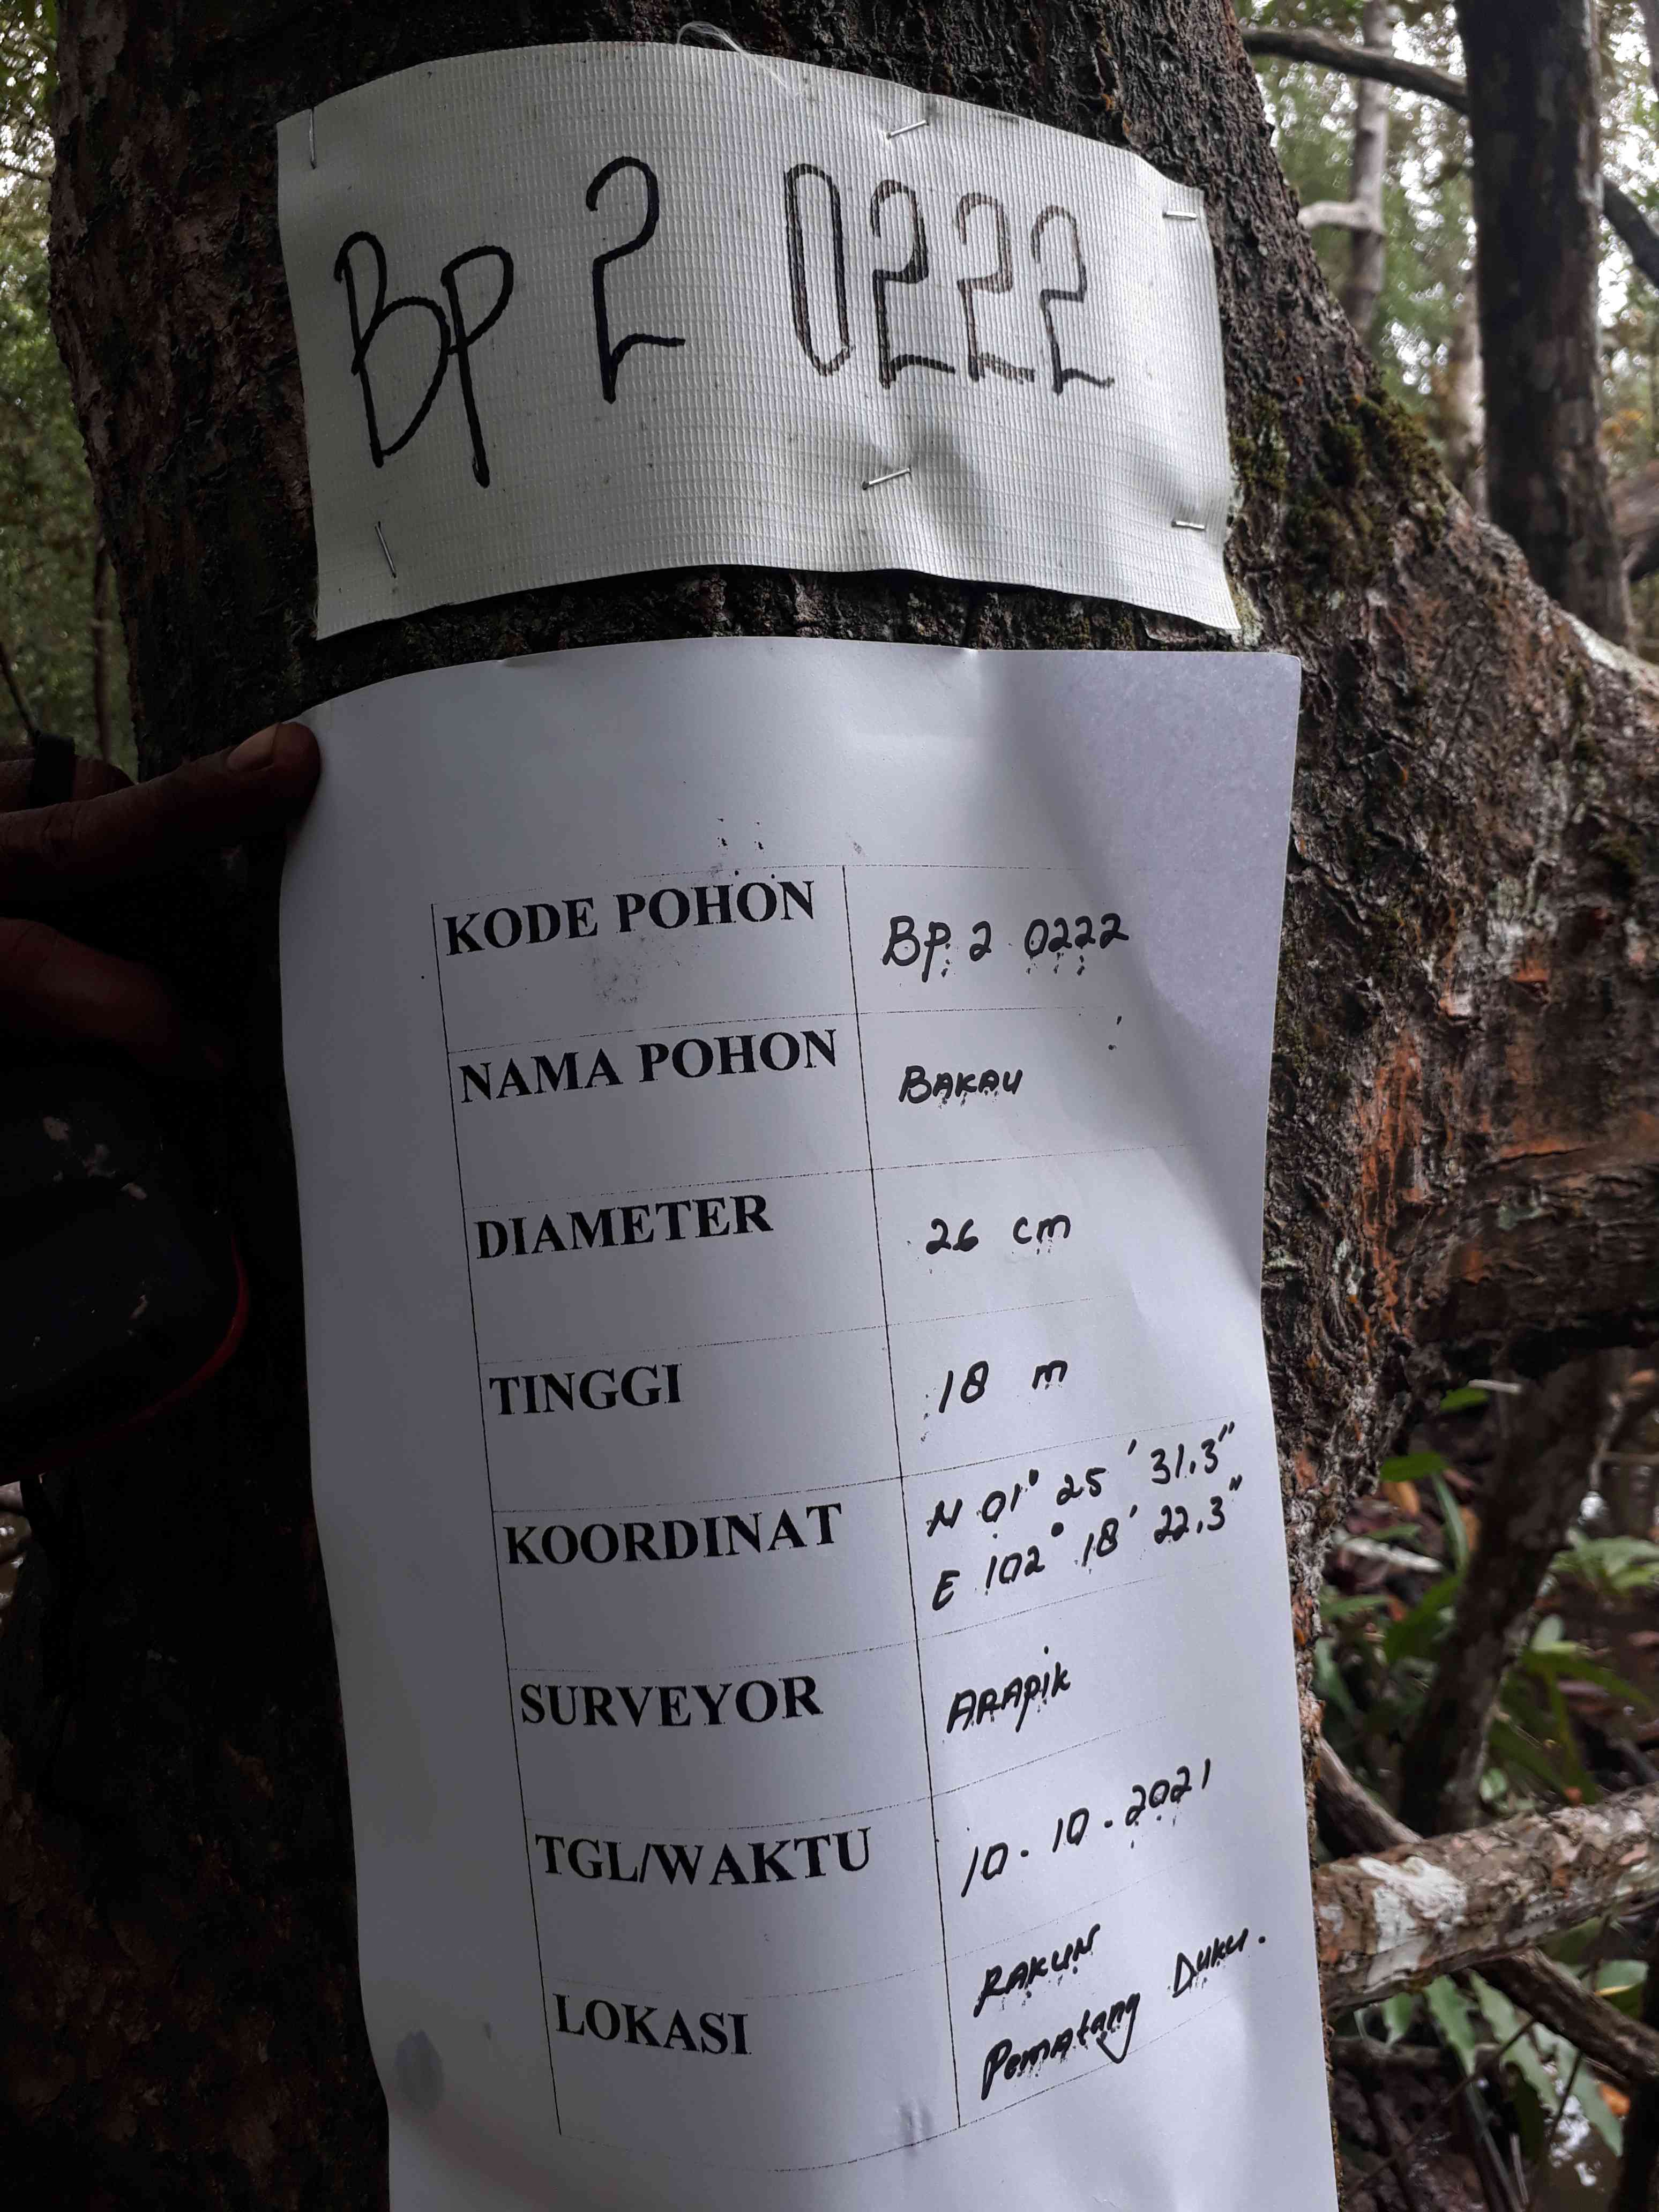 BP 2 0222
KODE POHON BP. 2 0222
NAMA POHON BAKAU
DIAMETER 26 cm
TINGGI 18 m
KOORDINAT N 01° 25 ' 31.3"
E 102° 18' 22.3"
SURVEYOR ARAPik
TGL/WAKTU 10. 10. 2021
LOKASI RAKUN
Pematang Duku.